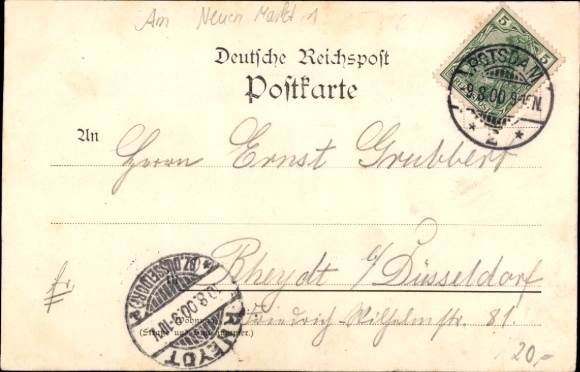 Am Neuen Markt 1
Deutsche Reichspost
Postkarte
5 5
POTSDAM
9.8.00 9-10N.
* 2 *
An
Herrn Ernst Grubbert
Rheydt b/Düsseldorf
Friedrich-Wilhelmstr. 81.
Wohnung
(Straße und Hausnummer.)
RHEYDT
(BZ. DÜSSELDORF)
.8.00
Fr.
20,-